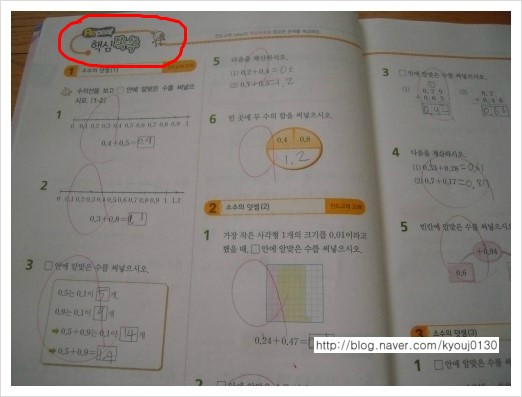 Repeat
핵심
1 소수의 덧셈(1)
수직선을 보고 □ 안에 알맞은 수를 써넣으
시오. (1~2)
1
0 0.1 0.2 0.3 0.4 0.5 0.6 0.7 0.8 0.9 1
0.4+0.5=0.9
2
0 0.1 0.2 0.3 0.4 0.5 0.6 0.7 0.8 0.9 1 1.1 1.2
0.3+0.8=
3 □ 안에 알맞은 수를 써넣으시오.
0.5는 0.1이 5 개
0.9는 0.1이 9 개
➡ 0.5+0.9는 0.1이 14 개
➡ 0.5+0.9=1.4
5 다음을 계산하시오.
(1) 0.2+0.4=0.6
6 빈 곳에 두 수의 합을 써넣으시오.
0.4 0.8
1.2
2 소수의 덧셈(2)
1 가장 작은 사각형 1개의 크기를 0.01이라고
했을 때, □ 안에 알맞은 수를 써넣으시오.
0.24+0.47=
2
3 □ 안에 알맞은 수를 써넣으시오.
(1) 0.2 9
(2) 0.2
4 다음을 계산하시오.
(2) 0.7+0.17=0.87
5 빈칸에 알맞은 수를 써넣
+0.84
0.6
3 소수의 덧셈(3)
1 □ 안에 알맞은 수를
http://blog.naver.com/kyouj0130